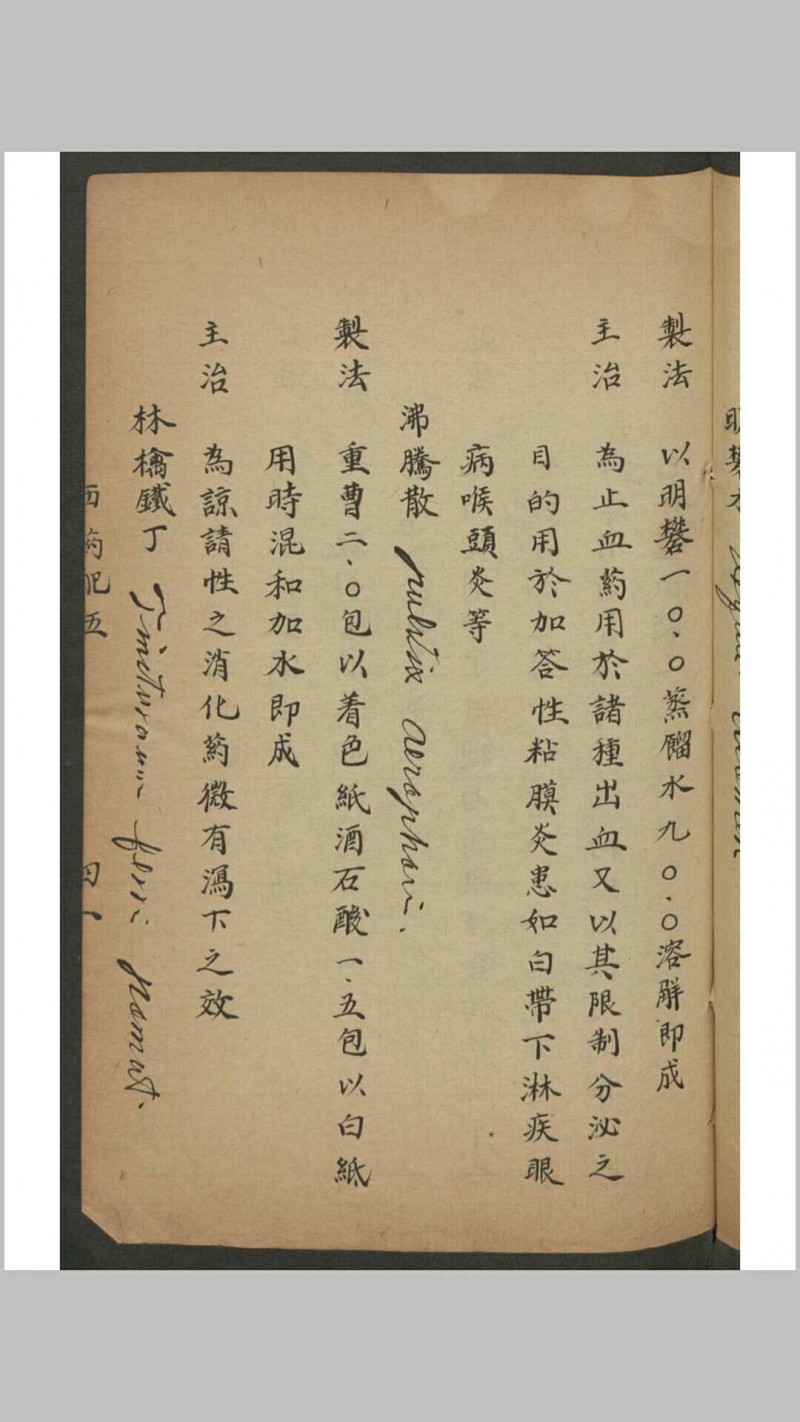 製法 以明礬一〇、〇蒸餾水九〇、〇溶解即成
主治 為止血药用於諸種出血又以其限制分泌之
目的用於加答性粘膜炎患如白帶下淋疾眼
病喉頭炎等
沸騰散 pulvis aerophori.
製法 重曹二、〇包以着色紙酒石酸一、五包以白紙
用時混和加水即成
主治 為諒請性之消化药微有瀉下之效
林檎鐵丁 Tinctura ferri pomat.